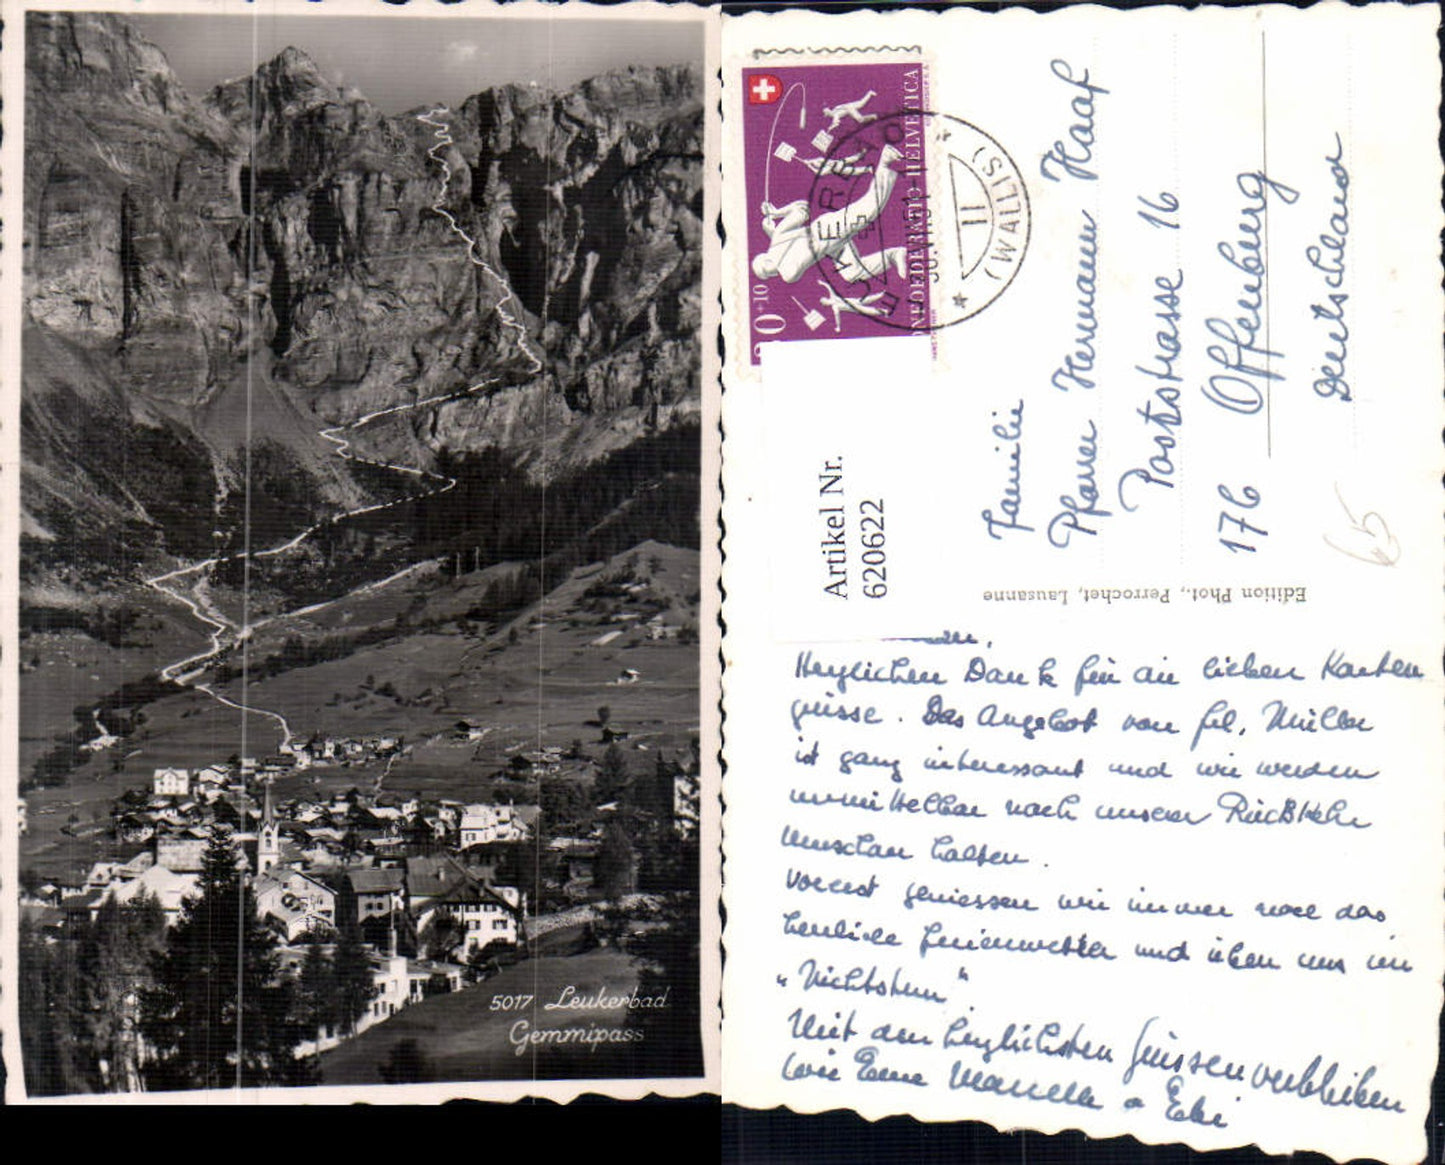 5017 Leukerbad
Gemmipass
CONFOEDERATIO HELVETICA
20+10
LEUKERBAD
(WALLIS)
11
Artikel Nr.
620622
Familie
Pfarrer Hermann Haaf
Poststrasse 16
17b Offenburg
Deutschland
65
Edition Phot., Perrochet, Lausanne
Herzlichen Dank für die lieben Karten
grüsse. Das Angebot von Frl. Müller
ist ganz interessant und wir werden
unmittelbar nach unserer Rückkehr
Umschau halten.
Vorerst geniessen wir immer noch das
herrliche Ferienwetter und üben uns im
"Nichtstun".
Mit den herzlichsten Grüssen verbleiben
wir Eure Marcelle & Edi